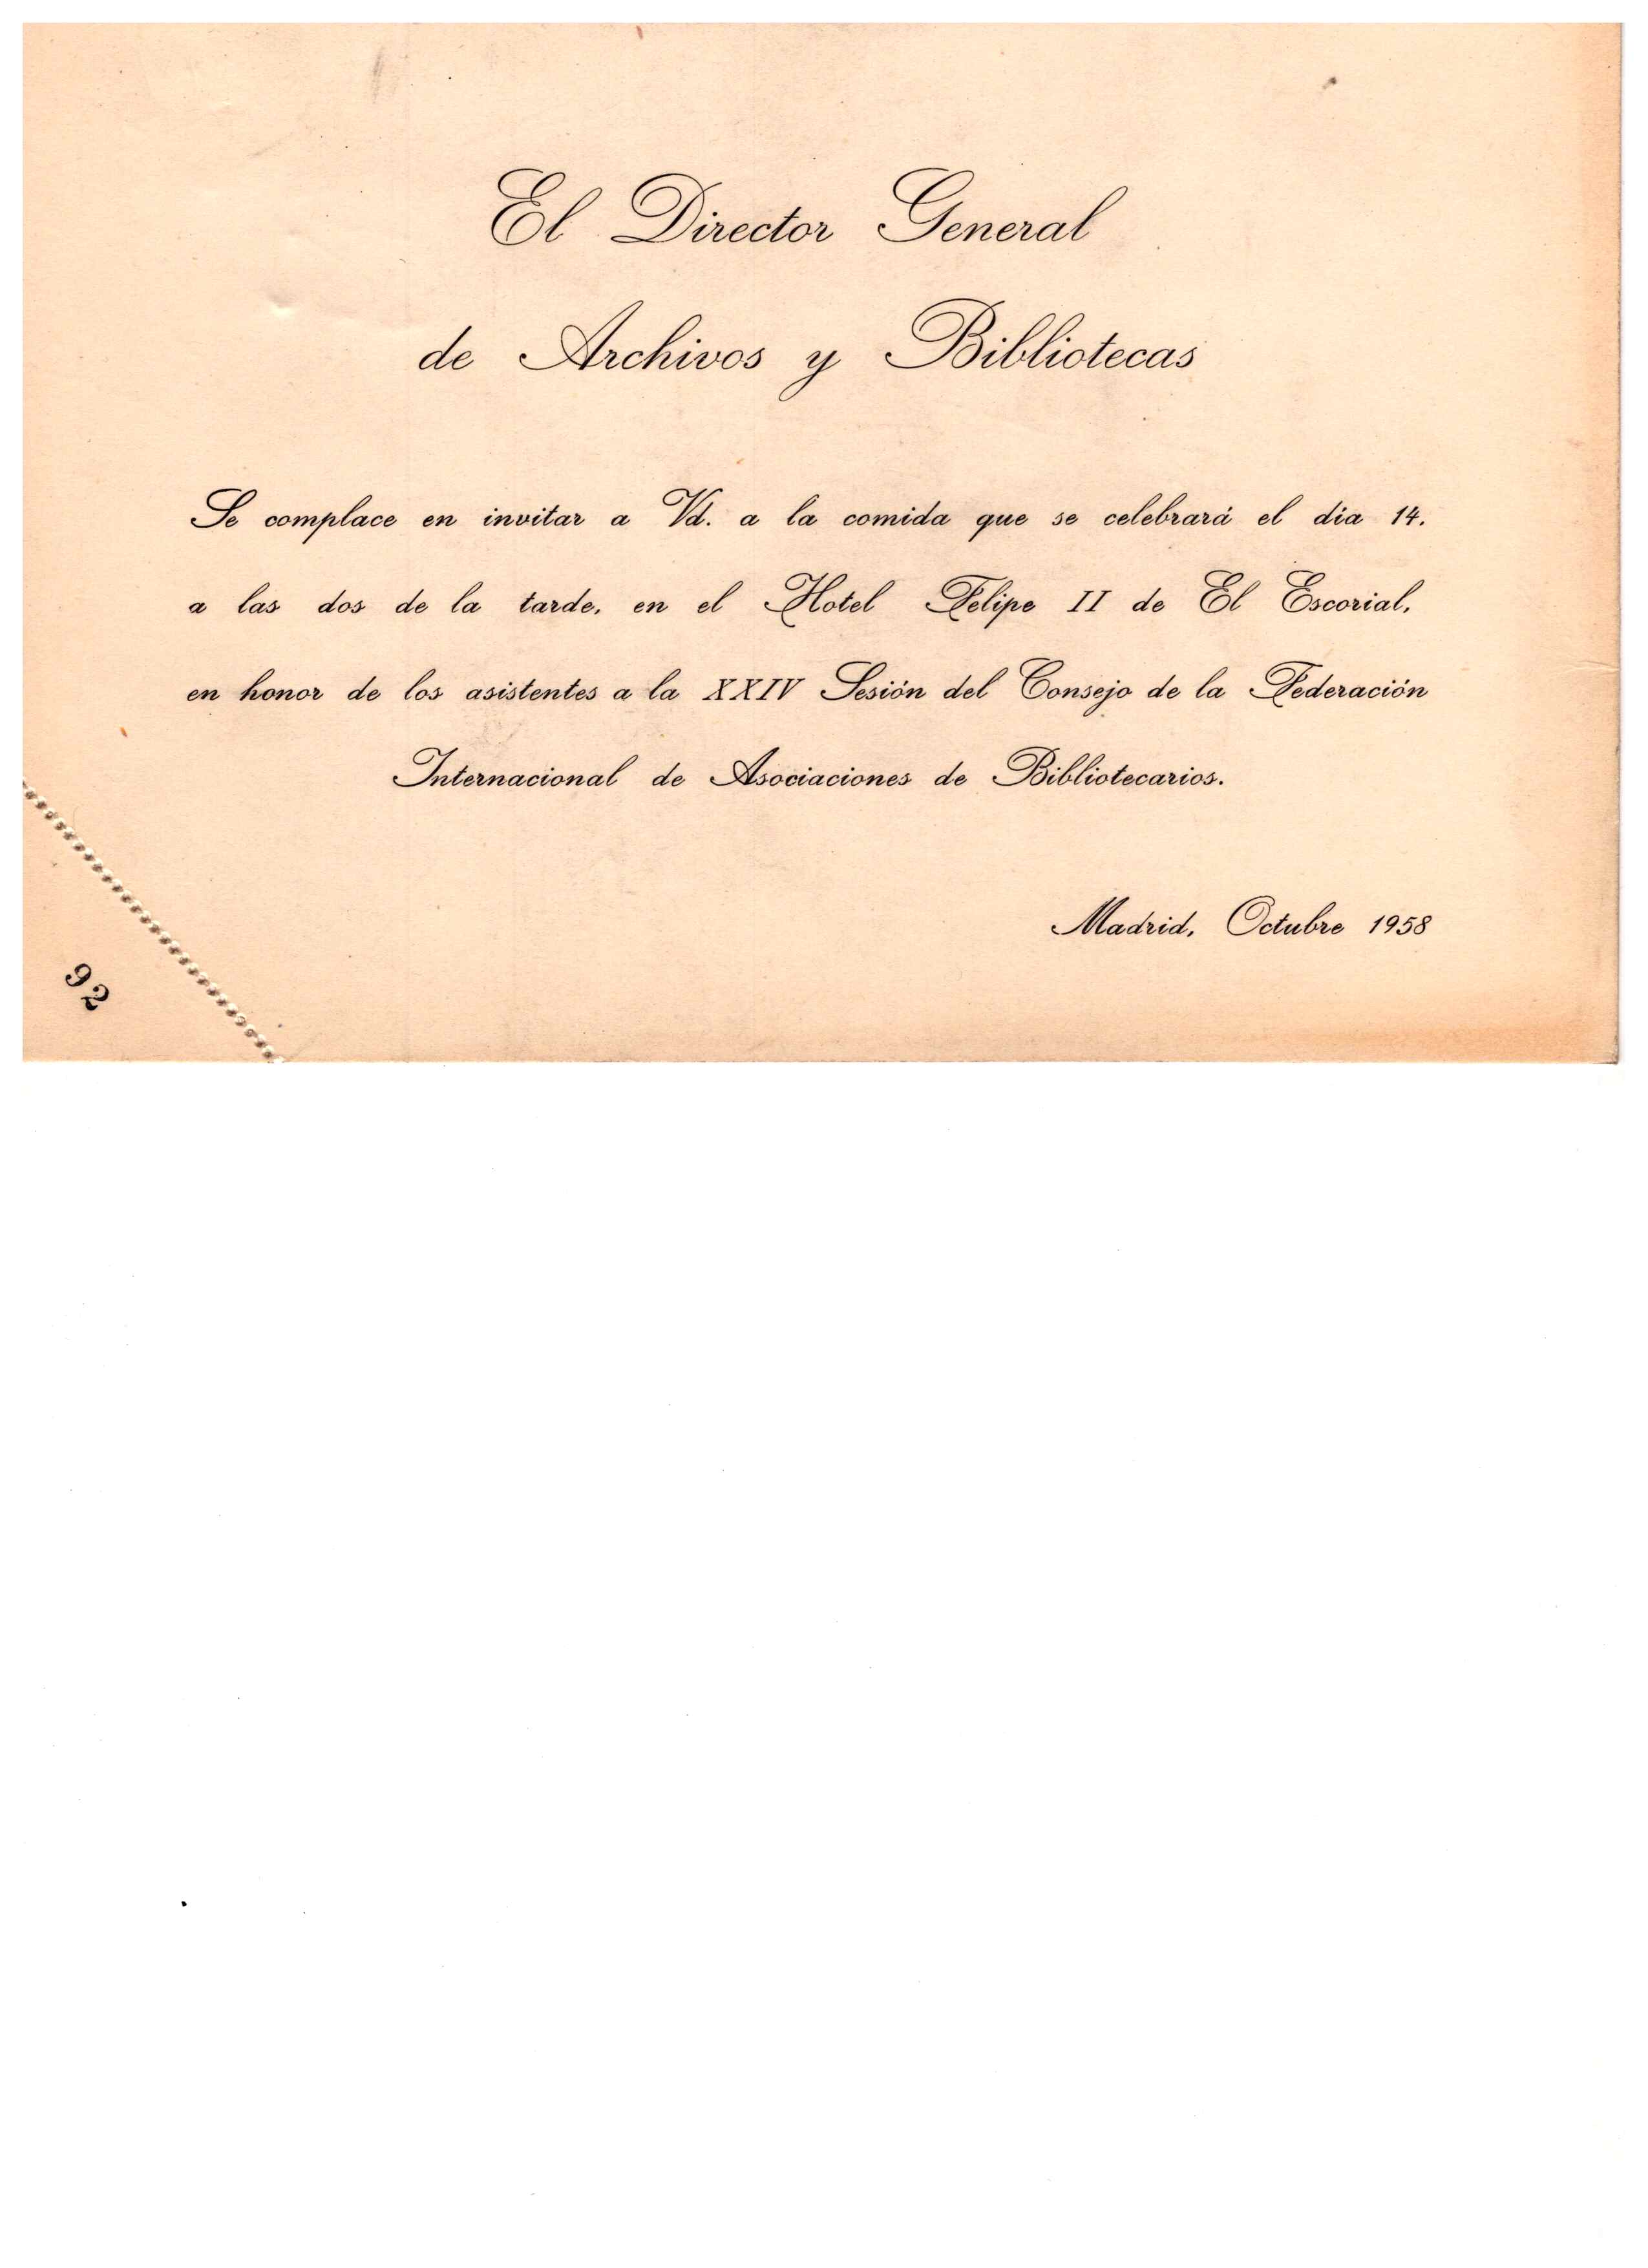 El Director General
de Archivos y Bibliotecas
Se complace en invitar a Vd. a la comida que se celebrará el día 14,
a las dos de la tarde, en el Hotel Felipe II de El Escorial,
en honor de los asistentes a la XXIV Sesión del Consejo de la Federación
Internacional de Asociaciones de Bibliotecarios.
Madrid, Octubre 1958
92